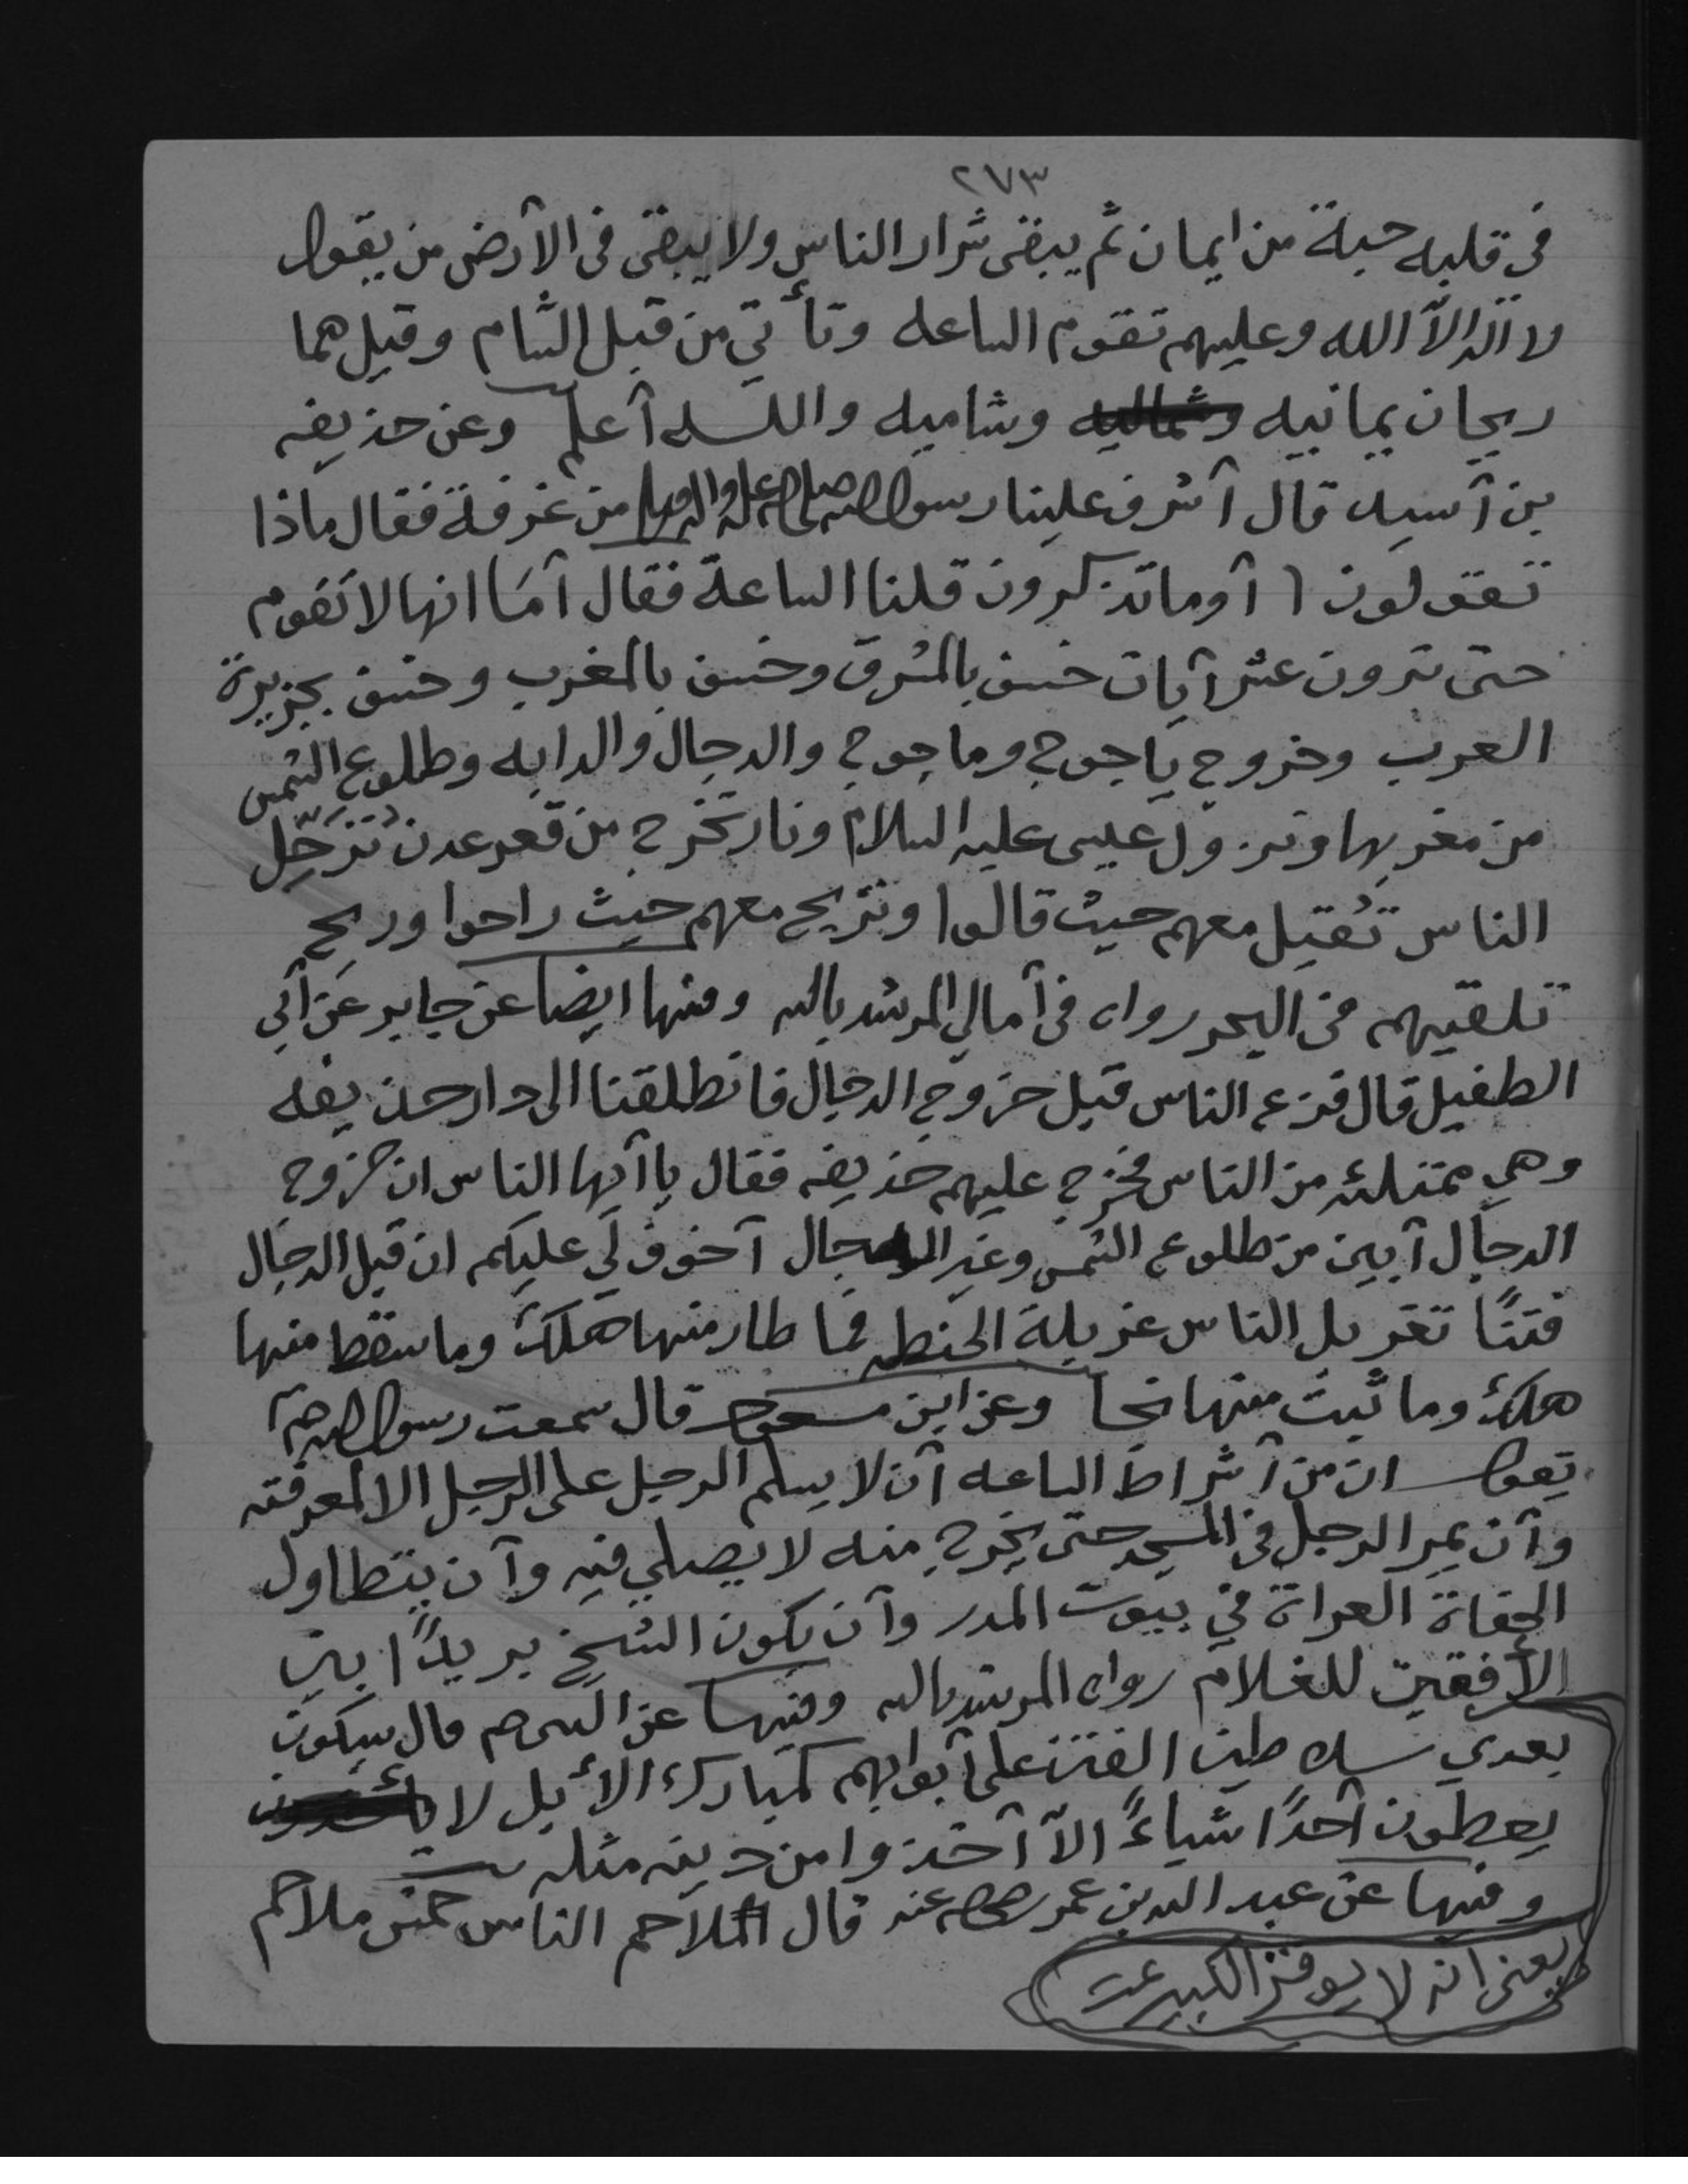 ٢٧٣
في قلبه حبة من ايمان ثم يبقى شرار الناس ولا يبقى في الأرض من يقول
لا آله الاّ الله وعليهم تقوم الساعه وتأتي من قبل الشام وقيل هما
ريحان يمانيه وشماليه وشاميه والله أعلم وعن حذيفه
بن أسيد قال أشرف علينا رسول الله صلى الله عليه وآله وسلم من غرفة فقال ماذا
تقولون أوما تذكرون قلنا الساعة فقال أمَا انها لا تقوم
حتى ترون عشر آيات خسف بالمشرق وخسف بالمغرب وخسف بجزيرة
العرب وخروج ياجوج وماجوج والدجال والدابه وطلوع الشمس
من مغربها ونزول عيسى عليه السلام ونار تخرج من قعر عدن تُرَحِّل
الناس تُقيل معهم حيث قالوا وتريح معهم حيث راحوا وريح
تلقيهم في البحر رواه في أمالي المرشد بالله ومنها ايضا عن جابر عن أبي
الطفيل قال فزع الناس قبل خروج الدجال فانطلقنا الى دار حذيفه
وهي ممتلئه من الناس فخرج عليهم حذيفه فقال يا أيها الناس ان خروج
الدجال أبين من طلوع الشمس وغير الدجال أخوف لي عليكم ان قبل الدجال
فتنًا تغربل الناس غربلة الحنطه فما طار منها هلك وما سقط منها
هلك وما ثبت منها نجا وعن ابن مسعود قال سمعت رسول الله ص
يقول ان من أشراط الساعه أن لا يسلم الرجل على الرجل الا لمعرفته
وأن يمر الرجل في المسجد حتى يخرج منه لا يصلي فيه وأن يتطاول
الحفاة العراة في بيوت المدر وأن يكون الشيخ بريدًا بين
الأفقين للغلام رواه المرشد بالله وفيها عن النبي ص قال سيكون
بعدي سلاطين الفتن على أبوابهم كمبارك الأبل لا يأخذون
يعطون أحدًا شياءً الاّ أخذوا من دينه مثله
وفيها عن عبد الله بن عمر رضي الله عنه قال الملاحم الناس خمس ملاحم
يعني انه لا يوقر الكبير تمت